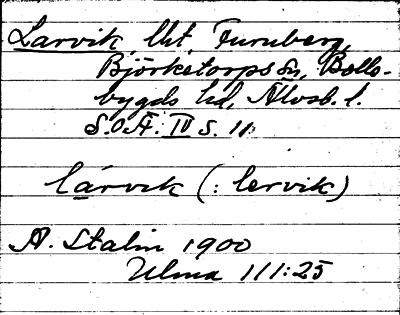 Larvik, lht Furuberg,
Björketorps sn, Bolle-
bygds hd, Älvsb. l.
S.O.Ä. IV s. 11.
lárvik (: lervik)
A. Stalin 1900
Ulma 111:25